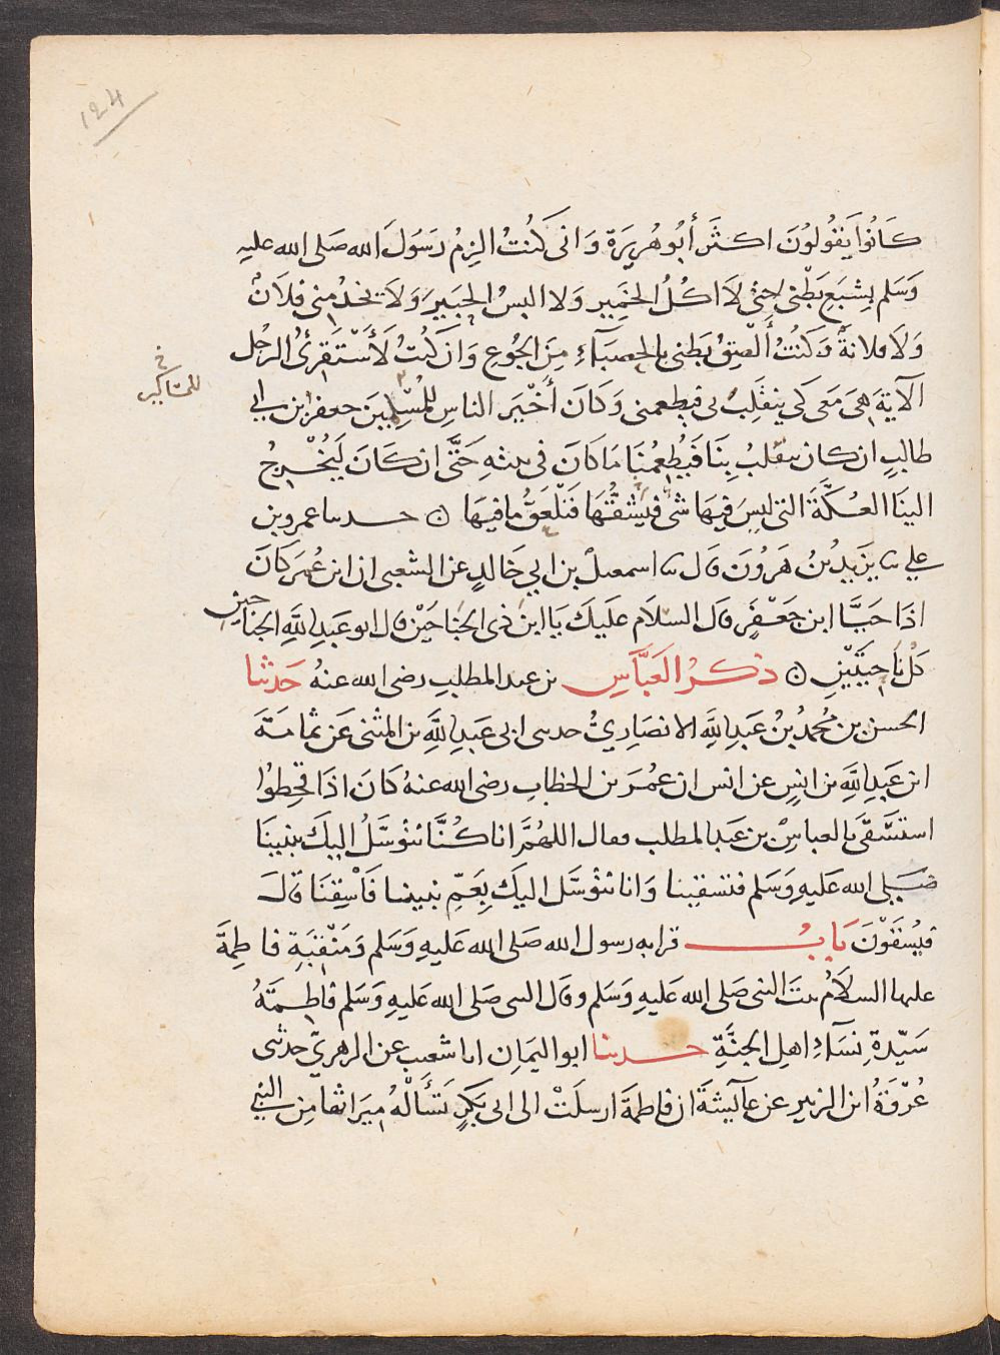 124
كَانُوا يَقُولُونَ اكثَر أبُو هُرَيرَة وَانى كَنْتُ الزِمُ رَسُولَ الله صَلى الله عليه
وَسَلم لِشِبَعِ بَطْنى حتى لاَ اكُلُ الخَمِير ولا البسُ الحَبِيرَ وَلاَ يخدُمنى فلاَنٌ
وَلاَ فلانةٌ وَكَنْتُ أُلْصِقُ بَطنى بالحصبَآءِ مِنَ الجُوعِ وَان كَنتُ لأَسْتَقرئُ الرجُل
الآيةَ هىَ مَعى كَى ينقَلِبَ بى فيطعمنى وَكَانَ أَخْيَر الناسِ لِلْمسلمِينَ جعفرُ بن ابى
للمساكين خ
طالبٍ ان كان ينقلبُ بِنَا فَيُطعِمُنَا مَا كَانَ فى بيته حَتَّى ان كَانَ لَيُخْرِجُ
الينَا العُكَّةَ التى ليسَ فيهَا شىٌ فَيَشُقُّهَا فَنَلْعَقُ ما فيهَا ۞ حدثنا عمرو بن
على ثنا يَزيدُ بنُ هَرُونَ قال ثنا اسمعيل بن ابي خَالدٍ عن الشعبى ان ابن عُمَر كَانَ
اذَا حَيَّا ابن جَعْفَرٍ قال السلاَم علَيكَ يَا ابنَ ذى الجنَاحَيْن قال ابو عَبدِ اللهِ الجناحين
كل ناحيتَيْنِ ۞ ذكرُ العَبَّاسِ بن عبد المطلبِ رضى الله عنهُ حَدثنا
الحسن بن محمدُ بنُ عَبدِ اللهِ الانصَارِيُّ حدثنى ابى عَبدِ اللهِ بن المثنى عَن ثُمامَةَ
ابن عَبدِ اللهِ بن انسٍ عن انس ان عمُرَ بن الخطابِ رضى الله عنهُ كَانَ اذَا قحِطوُا
استَسْقَى بالعباسِ بن عَبدِ المطلب فقال اللهُمَّ انا كُنَّا نتوَسَّلُ اليكَ بنبينَا
صَلى الله عَليهِ وَسَلم فتسقينا وَانا نتوَسَّل اليَكَ بِعَمِّ نبينا فَاسْقِنَا قالَ
فيُسقَوْنَ بَابُ قرابه رسول الله صَلى الله عَليهِ وَسَلم وَمَنْقبَةِ فاطِمةَ
عليها السلاَمُ بنت النبى صَلى الله عَليهِ وَسَلم وقال النبى صَلى الله عَليهِ وَسَلم فاطِمَةُ
سَيّدةِ نسَآءِ اهلِ الجنَّةِ حدثنا ابو اليمَانِ انا شعيب عن الزهريّ حدثنى
عُرْوَةُ ابن الزبير عن عآيشةَ ان فاطمةَ ارسلَتْ الى ابى بَكرٍ تسأَلهُ ميرَاثها مِن النبي